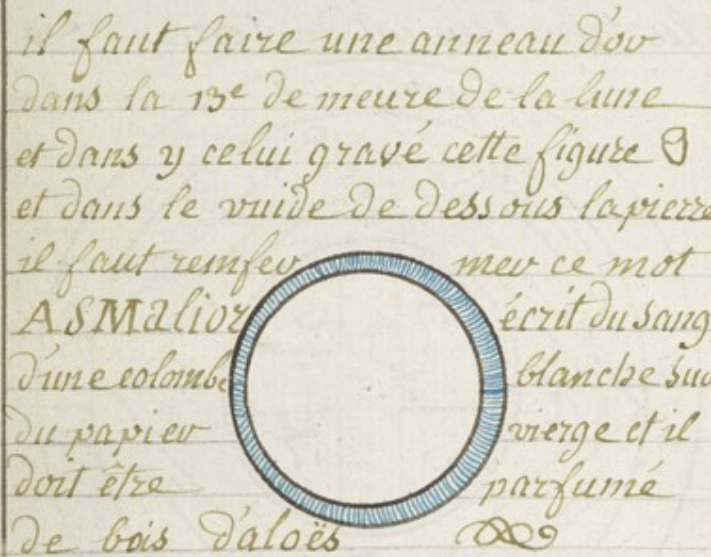 il faut faire une anneau d'or
dans la 13e de meure de la lune
et dans y celui gravé cette figure
et dans le vuide de dessous la pierre
il faut remfer mer ce mot
ASMalior écrit du sang
d'une colombe blanche sur
du papier vierge et il
doit être parfumé
de bois d'aloës